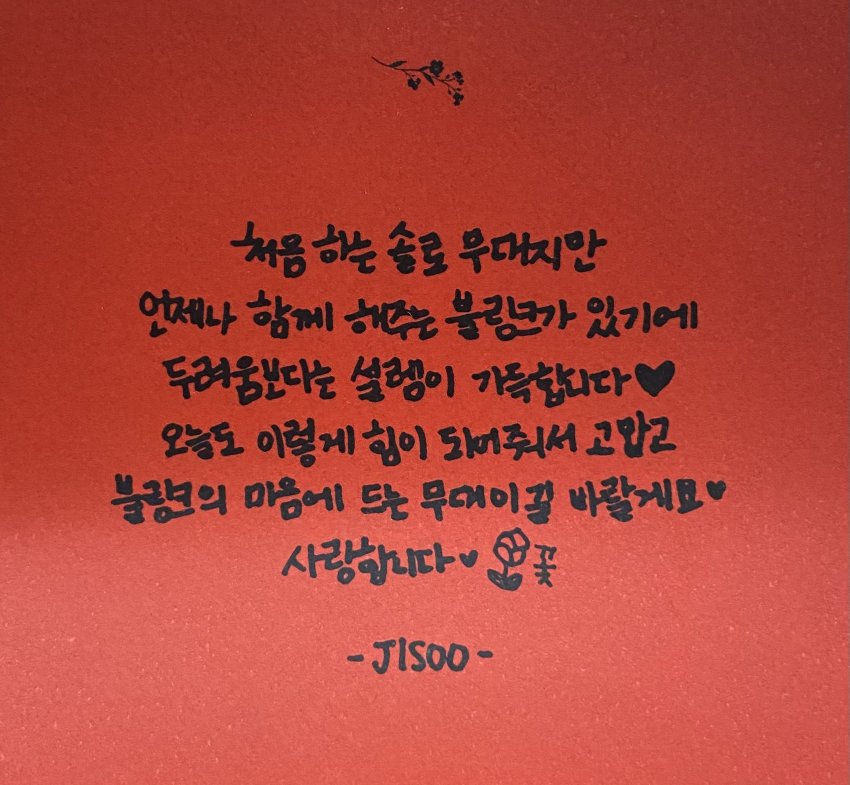 처음 하는 솔로 무대지만
언제나 함께 해주는 블링크가 있기에
두려움보다는 설렘이 가득합니다♥
오늘도 이렇게 힘이 되어줘서 고맙고
블링크의 마음에 드는 무대이길 바랄게요♥
사랑합니다♥ 꽃
- JISOO -